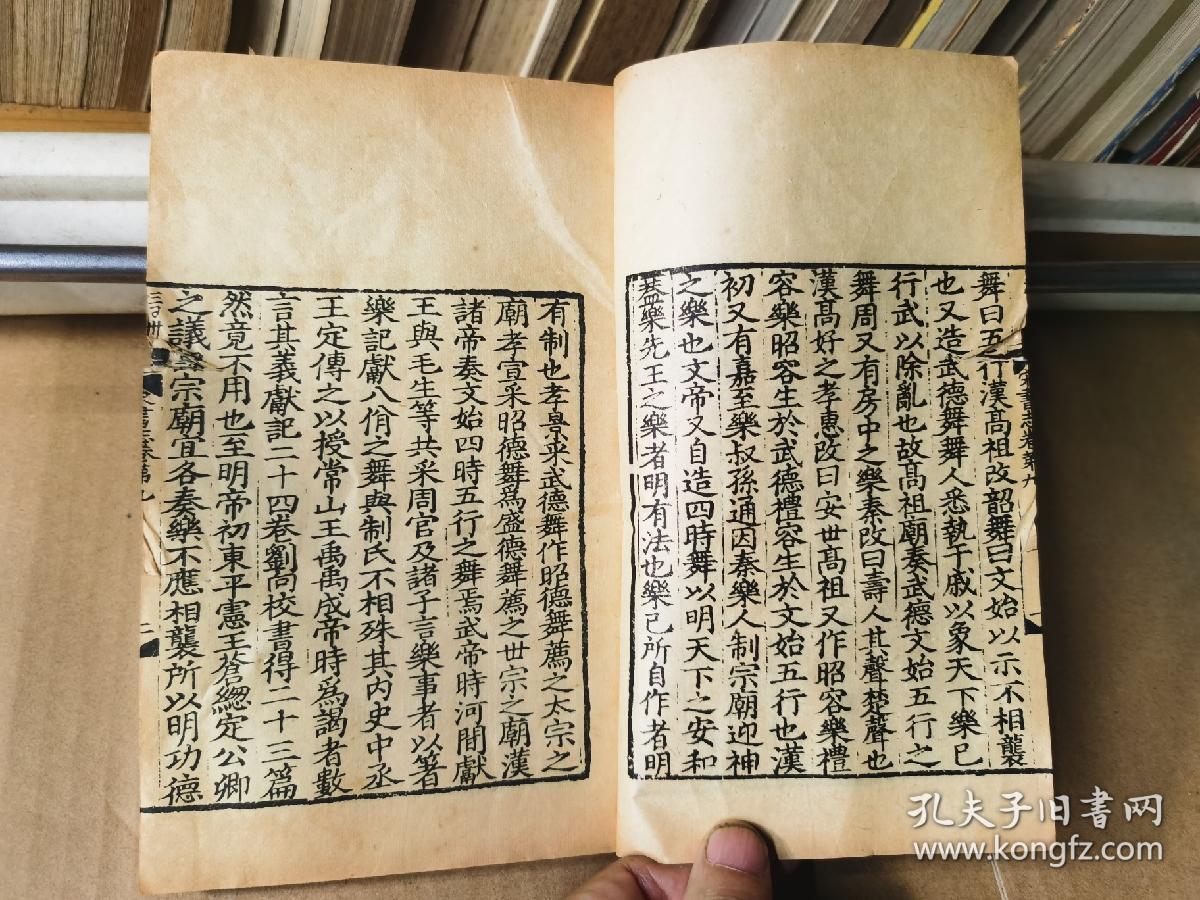 舞曰五行漢高祖改韶舞曰文始以示不相襲
也又造武德舞舞人悉執干戚以象天下樂已
行武以除亂也故高祖廟奏武德文始五行之
舞周又有房中之樂秦改曰壽人其聲楚聲也
漢高好之孝惠改曰安世高祖又作昭容樂禮
容樂昭容生於武德禮容生於文始五行也漢
初又有嘉至樂叔孫通因秦樂人制宗廟迎神
之樂也文帝又自造四時舞以明天下之安和
葢樂先王之樂者明有法也樂已所自作者明
有制也孝景采武德舞作昭德舞薦之太宗之
廟孝宣采昭德舞爲盛德舞薦之世宗之廟漢
諸帝奏文始四時五行之舞焉武帝時河間獻
王與毛生等共采周官及諸子言樂事者以著
樂記獻八佾之舞與制氏不相殊其内史中丞
王定傳之以授常山王禹禹成帝時爲謁者數
言其義獻記二十四卷劉向校書得二十三篇
然竟不用也至明帝初東平憲王蒼緫定公卿
之議宗廟宜各奏樂不應相襲所以明功德
志卷第九
二
孔夫子旧书网
www.kongfz.com